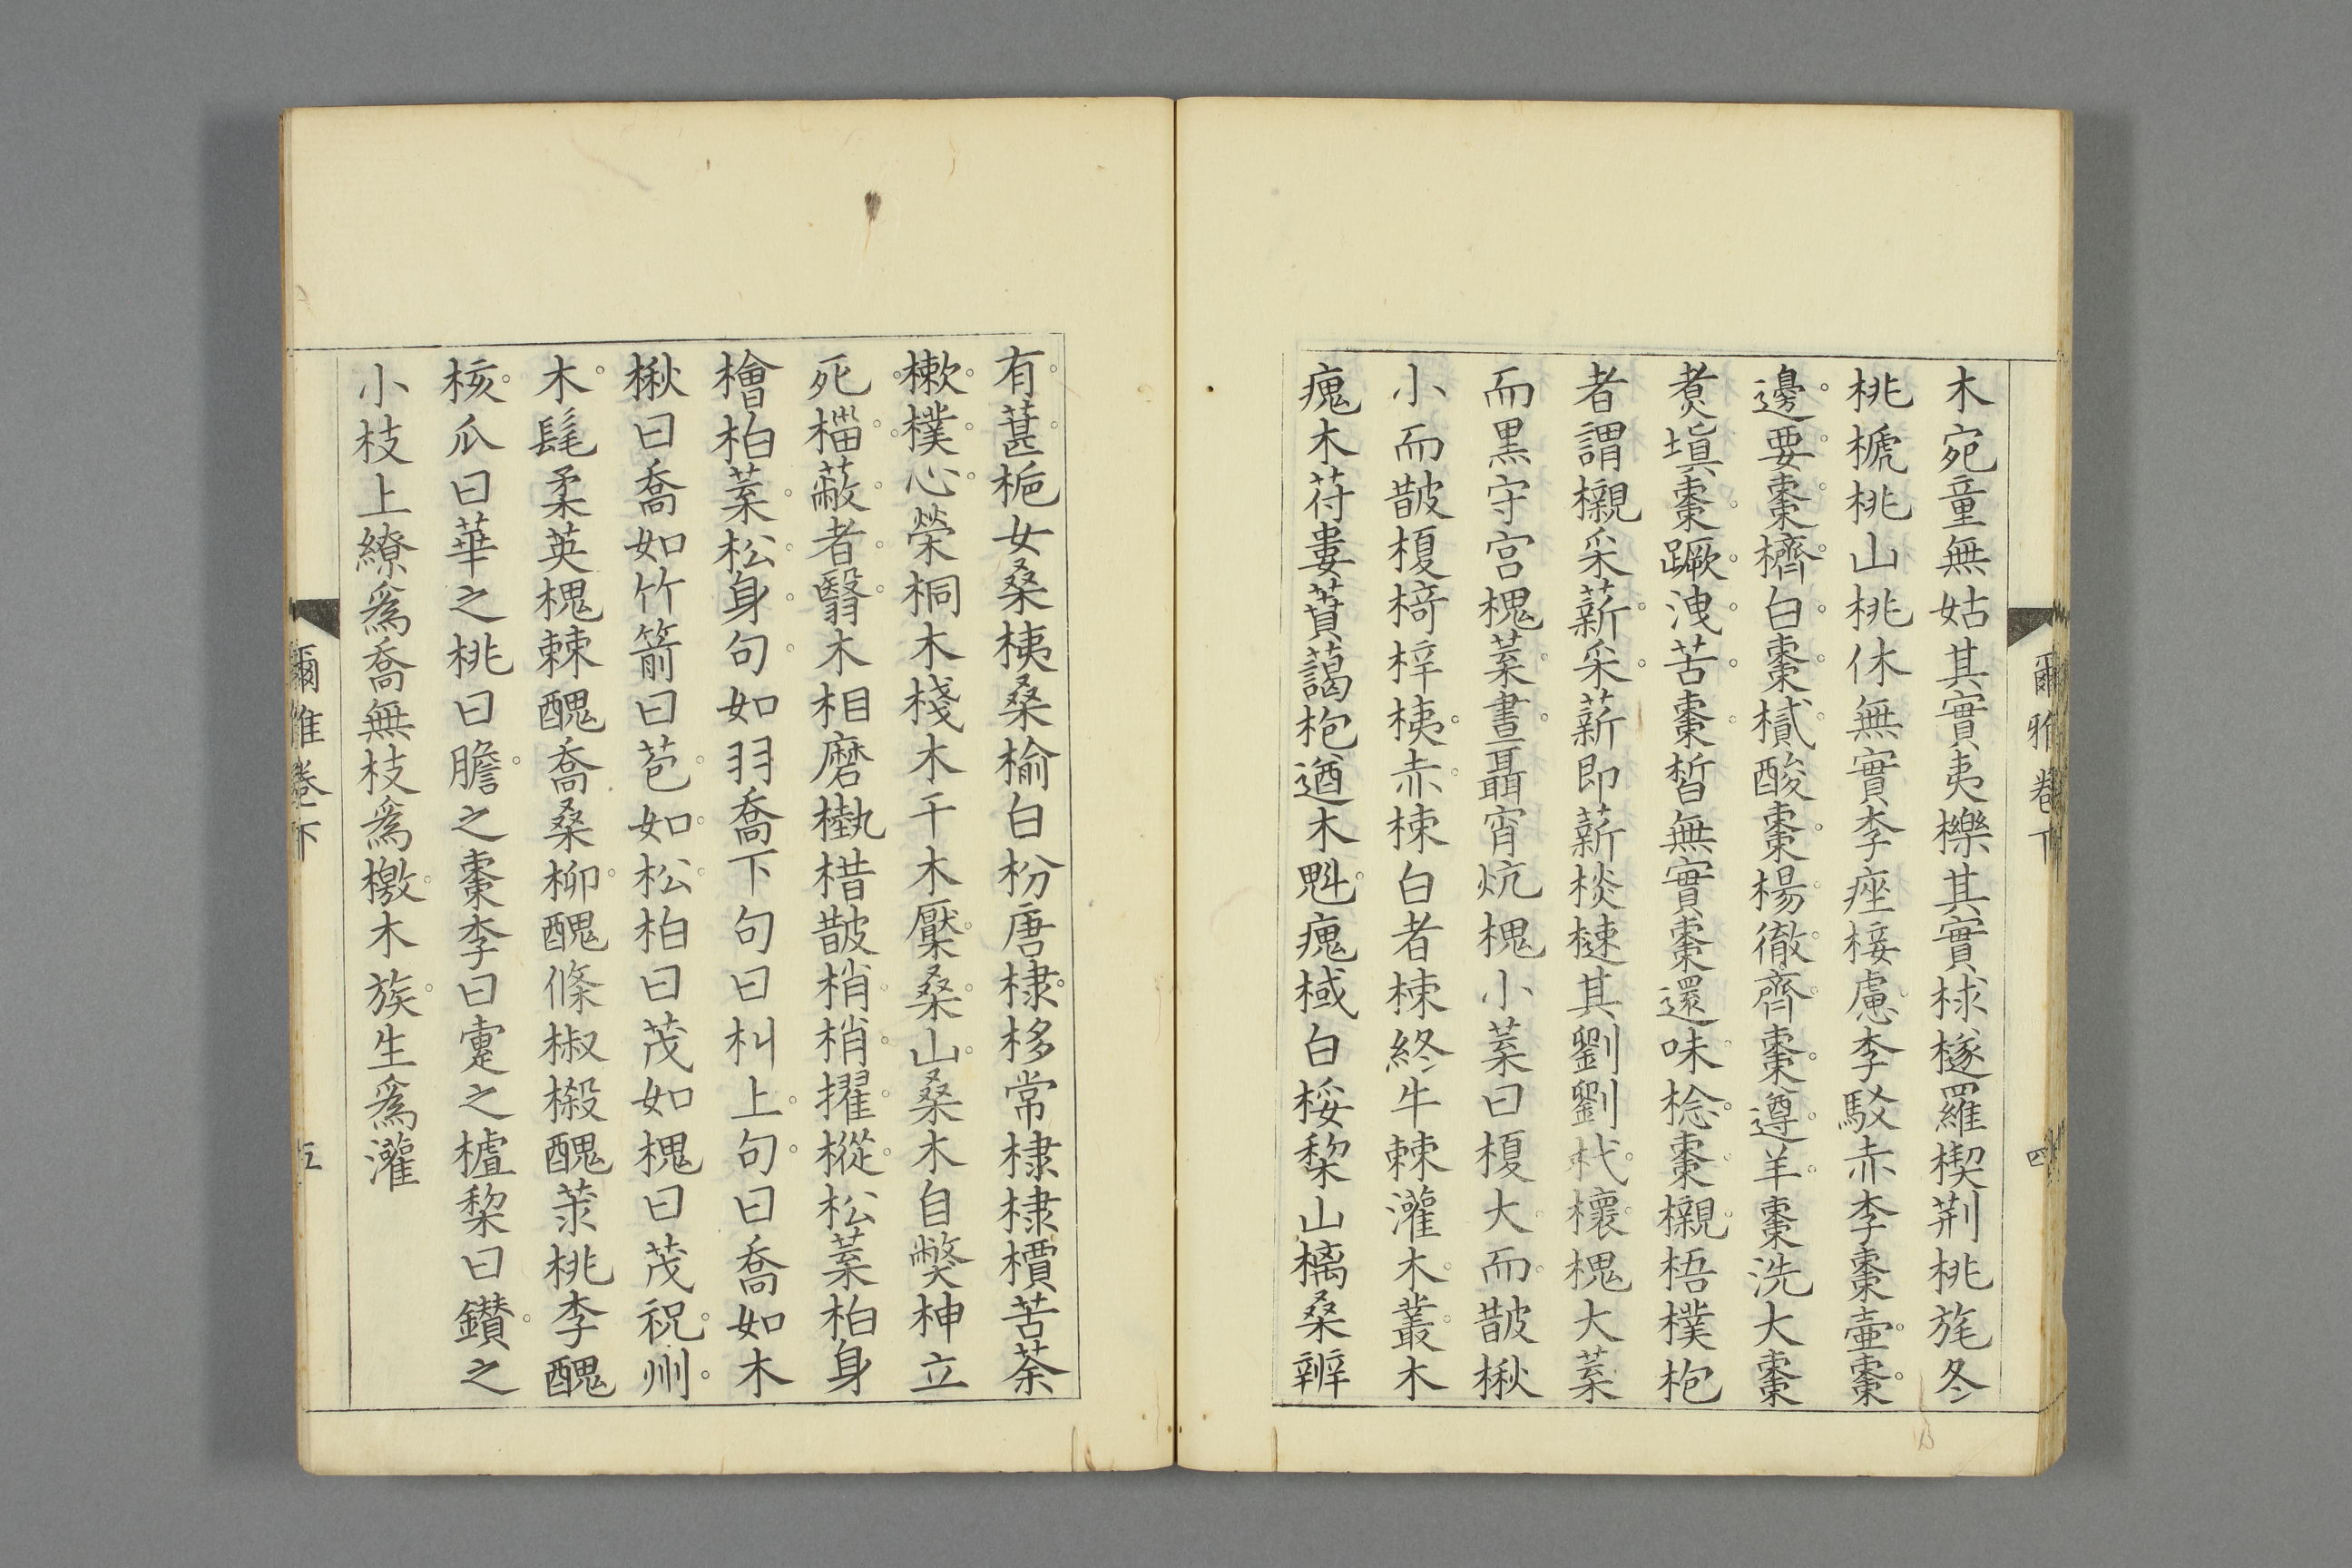 爾雅卷下
四
木宛童無姑其實夷櫟其實梂檖羅楔荆桃旄冬
桃榹桃山桃休無實李痤椄慮李駁赤李棗壺棗
邊要棗櫅白棗樲酸棗楊徹齊棗遵羊棗洗大棗
煑塡棗蹶洩苦棗晳無實棗還味棯棗櫬梧樸枹
者謂櫬采薪采薪即薪棪樕其劉劉杙櫰槐大葉
而黑守宫槐葉晝聶宵炕槐小葉曰榎大而皵楸
小而皵榎椅梓桋赤梀白者梀終牛棘灌木叢木
瘣木苻婁蕡藹枹遒木魁瘣棫白桵棃山樆桑辨
有葚梔女桑桋桑榆白枌唐棣栘常棣棣檟苦荼
樕樸心榮桐木棧木干木檿桑山桑木自獘柛立
死椔蔽者翳木相磨槸棤皵梢梢擢樅松葉柏身
檜柏葉松身句如羽喬下句曰朻上句曰喬如木
楸曰喬如竹箭曰苞如松柏曰茂如槐曰茂祝州
木髦柔英槐棘醜喬桑柳醜條椒榝醜莍桃李醜
核瓜曰華之桃曰膽之棗李曰疐之樝棃曰鑚之
小枝上繚爲喬無枝爲檄木族生爲灌
爾雅卷下
五